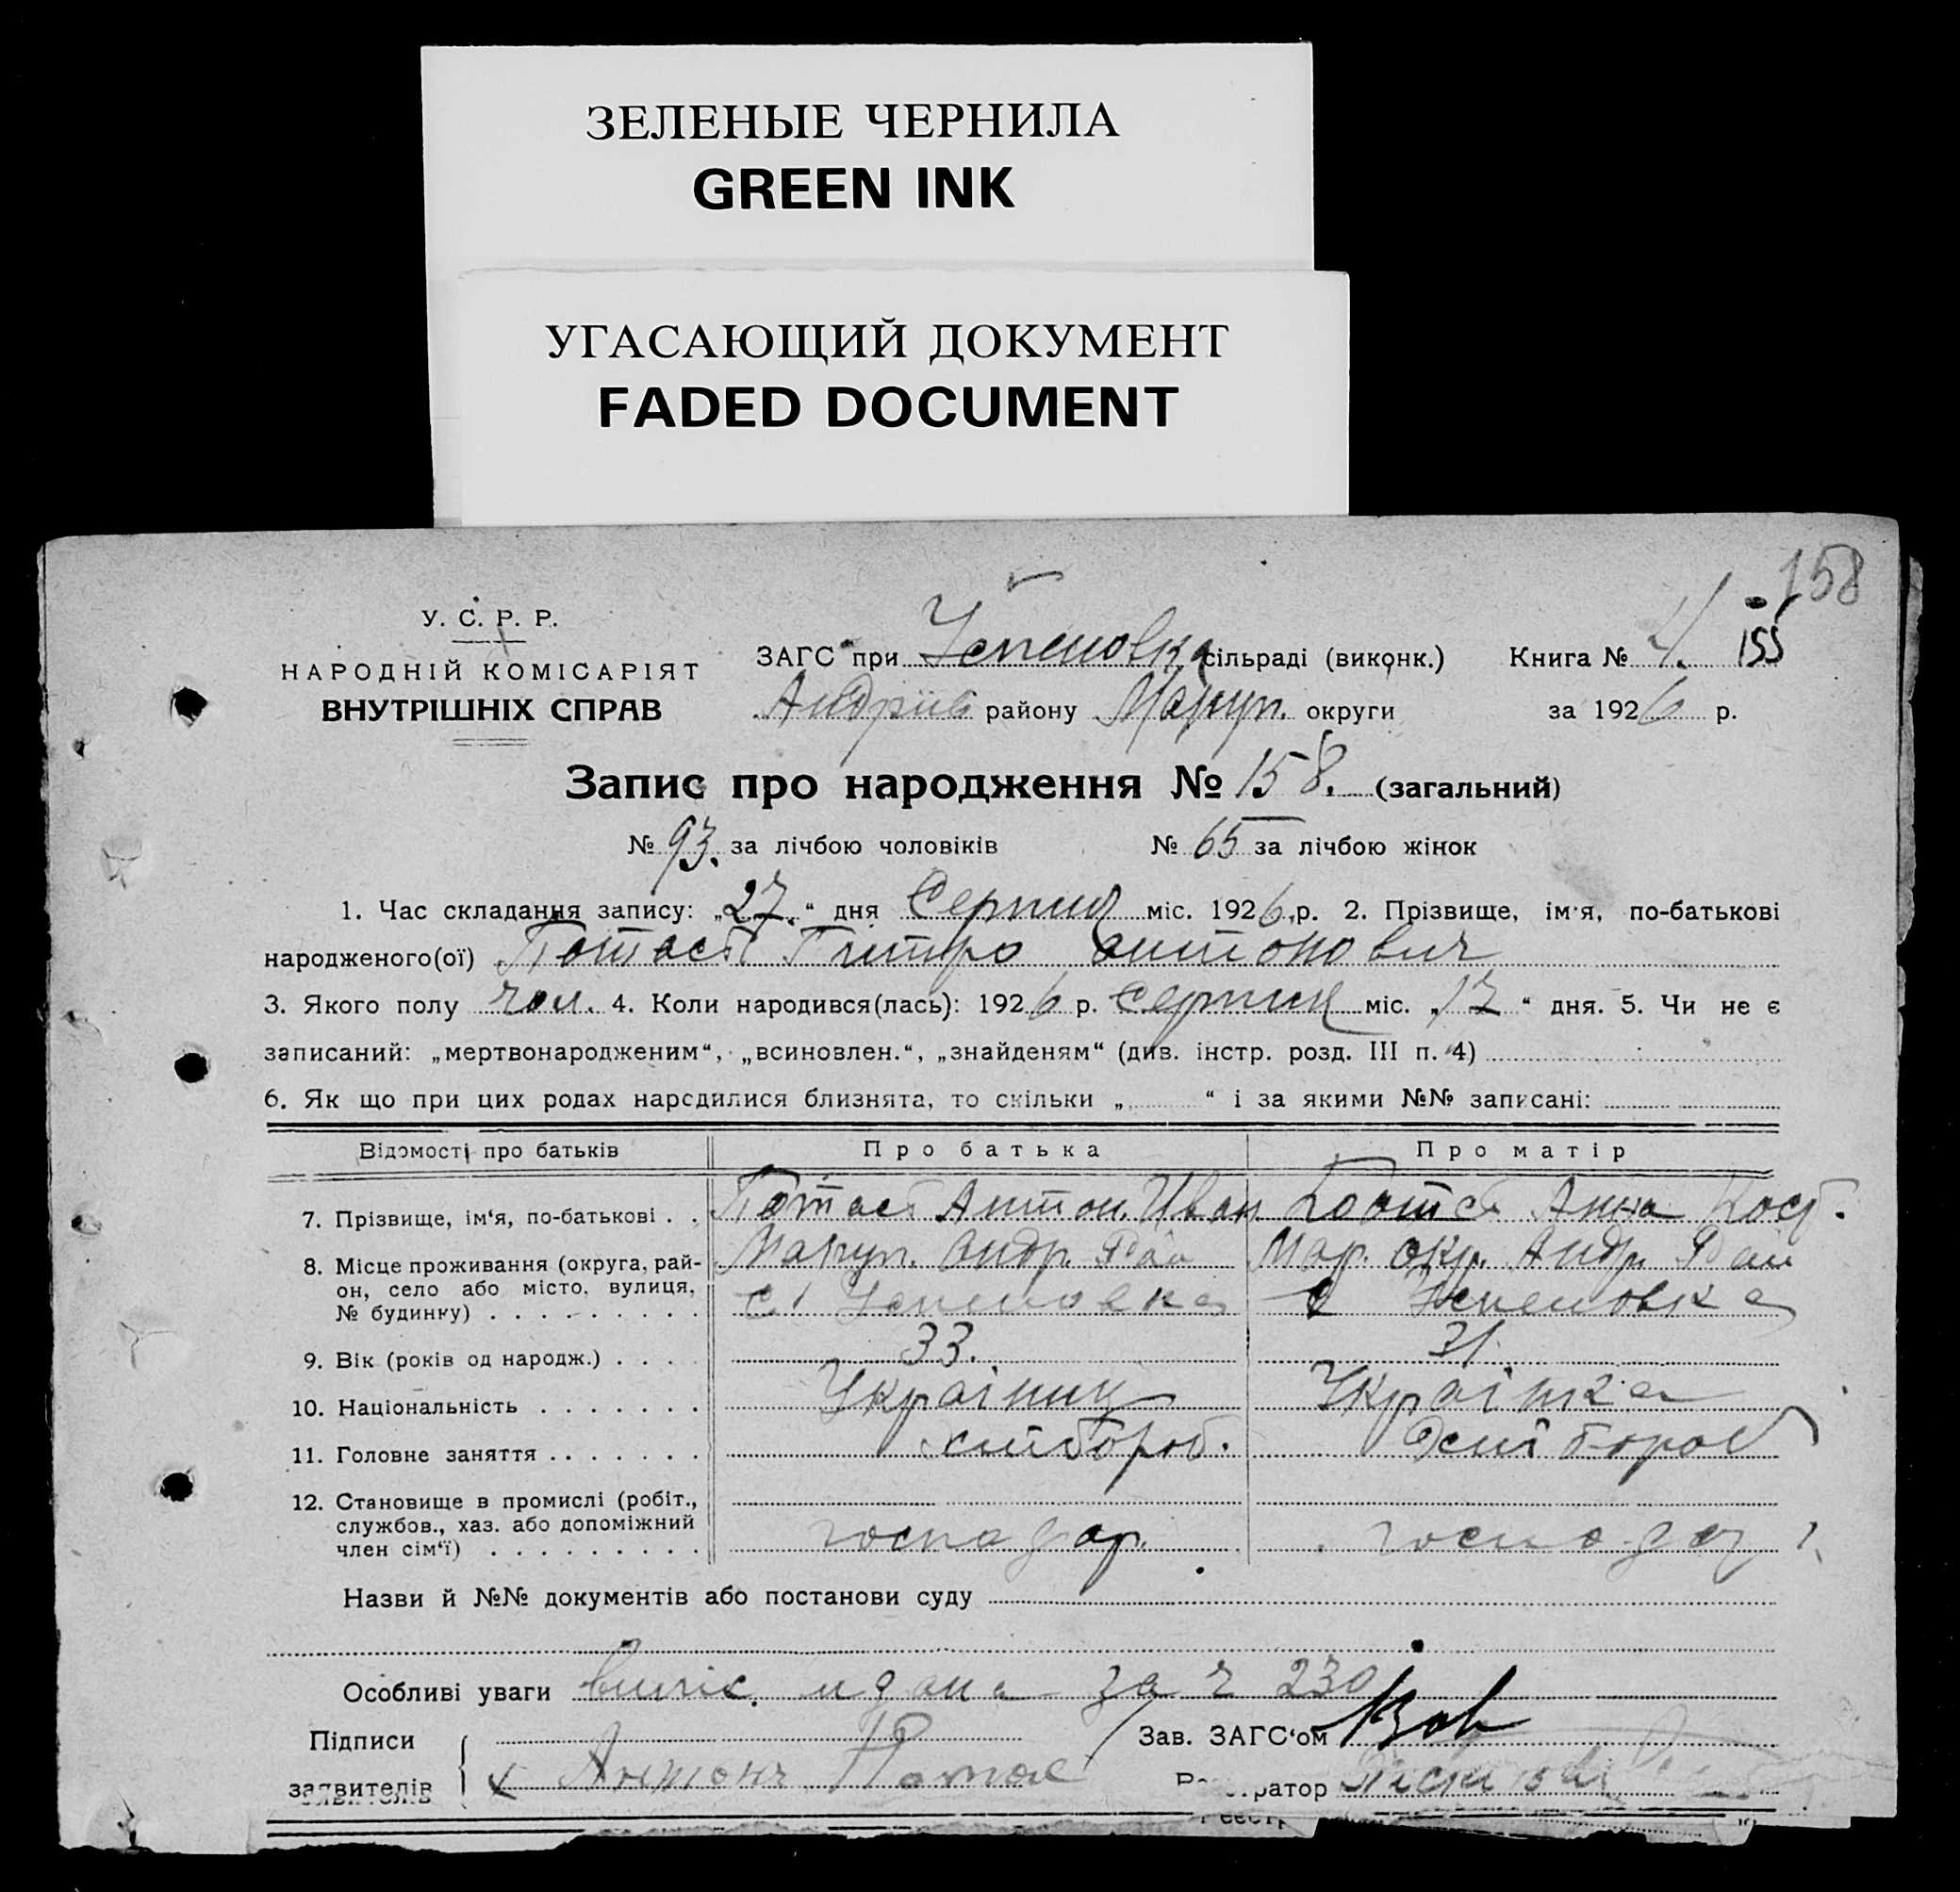 ЗЕЛЕНЫЕ ЧЕРНИЛА
GREEN INK
УГАСАЮЩИЙ ДОКУМЕНТ
FADED DOCUMENT
158
У. С. Р. Р.
НАРОДНІЙ КОМІСАРІЯТ
ВНУТРІШНІХ СПРАВ
ЗАГС при Успеновка сільраді (виконк.) Книга № 4. 155
Андріів району Маріуп. округи за 1926 р.
Запис про народження № 158. (загальний)
№ 93. за лічбою чоловіків № 65 за лічбою жінок
1. Час складання запису: „27.“ дня Серпня міс. 1926 р. 2. Прізвище, ім'я, по-батькові
народженого(ої) Петро Антонович
3. Якого полу чол. 4. Коли народився(лась): 1926 р. Серпня міс. „17“ дня. 5. Чи не є
записаний: „мертвонародженим“, „всиновлен.“, „знайденям“ (див. інстр. розд. III п. 4)
6. Як що при цих родах народилися близнята, то скільки „ “ і за якими №№ записані:
Відомості про батьків Про батька Про матір
7. Прізвище, ім‘я, по-батькові . . Антон Иван Анна
8. Місце проживання (округа, рай- Маріуп. Андр. Мар. окр. Андр.
он, село або місто, вулиця, с. Успеновка с Успеновка
№ будинку) . . . . . . . . .
9. Вік (років од народж.) . . . . 33. 31.
10. Національність . . . . . . . Українц Українка
11. Головне заняття . . . . . . . хлібороб. хлібороб
12. Становище в промислі (робіт.,
службов., хаз. або допоміжний
член сім‘ї) . . . . . . . . . господар. господар
Назви й №№ документів або постанови суду
Особливі уваги за ч 230
Підписи Зав. ЗАГС‘ом
заявителів Антонъ Потас